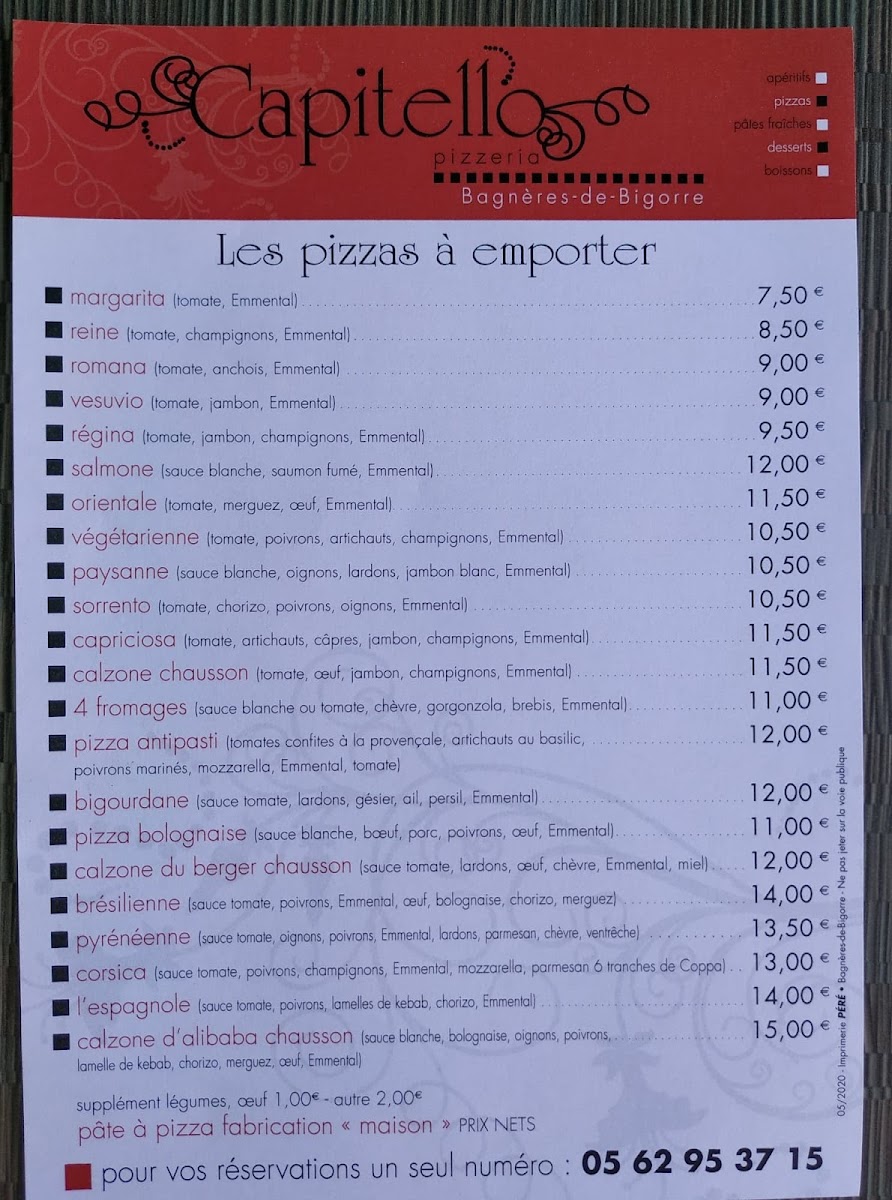 Capitello
pizzeria
Bagnères-de-Bigorre
apéritifs
pizzas
pâtes fraîches
desserts
boissons
Les pizzas à emporter
margarita (tomate, Emmental) 7,50 €
reine (tomate, champignons, Emmental) 8,50 €
romana (tomate, anchois, Emmental) 9,00 €
vesuvio (tomate, jambon, Emmental) 9,00 €
régina (tomate, jambon, champignons, Emmental) 9,50 €
salmone (sauce blanche, saumon fumé, Emmental) 12,00 €
orientale (tomate, merguez, œuf, Emmental) 11,50 €
végétarienne (tomate, poivrons, artichauts, champignons, Emmental) 10,50 €
paysanne (sauce blanche, oignons, lardons, jambon blanc, Emmental) 10,50 €
sorrento (tomate, chorizo, poivrons, oignons, Emmental) 10,50 €
capriciosa (tomate, artichauts, câpres, jambon, champignons, Emmental) 11,50 €
calzone chausson (tomate, œuf, jambon, champignons, Emmental) 11,50 €
4 fromages (sauce blanche ou tomate, chèvre, gorgonzola, brebis, Emmental) 11,00 €
pizza antipasti (tomates confites à la provençale, artichauts au basilic, 12,00 €
poivrons marinés, mozzarella, Emmental, tomate)
bigourdane (sauce tomate, lardons, gésier, ail, persil, Emmental) 12,00 €
pizza bolognaise (sauce blanche, bœuf, porc, poivrons, œuf, Emmental) 11,00 €
calzone du berger chausson (sauce tomate, lardons, œuf, chèvre, Emmental, miel) 12,00 €
brésilienne (sauce tomate, poivrons, Emmental, œuf, bolognaise, chorizo, merguez) 14,00 €
pyrénéenne (sauce tomate, oignons, poivrons, Emmental, lardons, parmesan, chèvre, ventrêche) 13,50 €
corsica (sauce tomate, poivrons, champignons, Emmental, mozzarella, parmesan 6 tranches de Coppa) 13,00 €
l'espagnole (sauce tomate, poivrons, lamelles de kebab, chorizo, Emmental) 14,00 €
calzone d'alibaba chausson (sauce blanche, bolognaise, oignons, poivrons, 15,00 €
lamelle de kebab, chorizo, merguez, œuf, Emmental)
supplément légumes, œuf 1,00€ - autre 2,00€
pâte à pizza fabrication « maison » PRIX NETS
pour vos réservations un seul numéro : 05 62 95 37 15
05/2020 - Imprimerie PÉRÉ • Bagnères-de-Bigorre - Ne pas jeter sur la voie publique